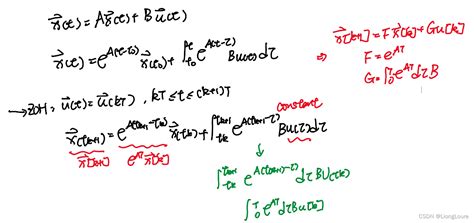 ẋ(t) = Ax(t) + Bu(t)
x(t) = e^{A(t-t₀)} x(t₀) + ∫_{t₀}^{t} e^{A(t-τ)} Bu(τ)dτ
⇒ x[k+1] = Fx[k] + Gu[k]
F = e^{AT}
G = ∫₀^T e^{AT} dτ B
→ ZOH: u(t) = u(kT), kT ≤ t ≤ (k+1)T
constant
x(t_{k+1}) = e^{A(t_{k+1}-t_k)} x(t_k) + ∫_{t_k}^{t_{k+1}} e^{A(t_{k+1}-τ)} Bu(τ)dτ
x[k+1] e^{AT} x[k]
∫_{t_k}^{t_{k+1}} e^{A(t_{k+1}-τ)} dτ Bu(t_k)
∫₀^T e^{Aτ} dτ Bu[k]
CSDN @LiongLoure